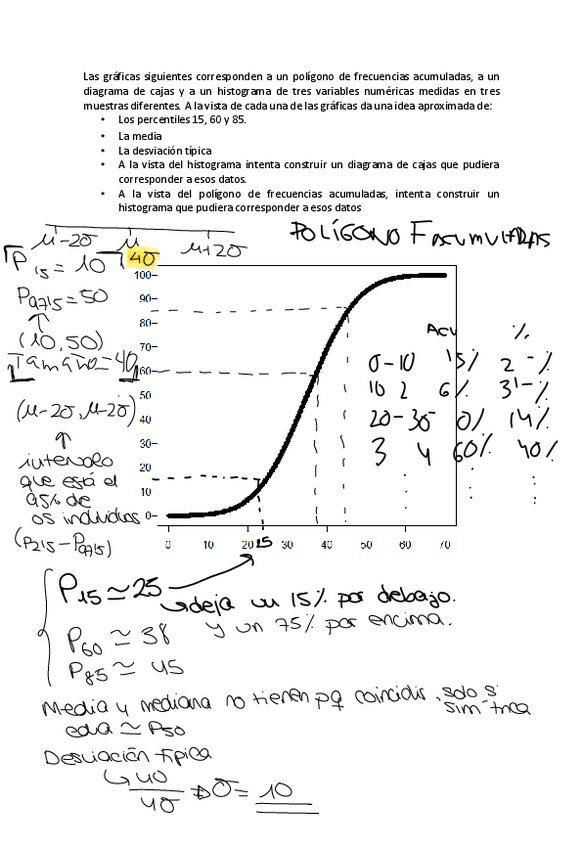 Las gráficas siguientes corresponden a un polígono de frecuencias acumuladas, a un
diagrama de cajas y a un histograma de tres variables numéricas medidas en tres
muestras diferentes. A la vista de cada una de las gráficas da una idea aproximada de:
• Los percentiles 15, 60 y 85.
• La media
• La desviación típica
• A la vista del histograma intenta construir un diagrama de cajas que pudiera
corresponder a esos datos.
• A la vista del polígono de frecuencias acumuladas, intenta construir un
histograma que pudiera corresponder a esos datos
POLÍGONO F ACUMULADAS
μ-2σ μ μ+2σ
P15 = 10 4σ
P97'5 = 50
(10,50)
Tamaño=40
(μ-2σ, μ-2σ)
intervalo
que está el
95% de
os individuos
(P2'5-P97'5)
100
90
80
70
60
50
40
30
20
10
0
0 10 20 25 30 40 50 60 70
Acu %
0-10 15% 2 - %
10 2 6% 3'- %
20-30 0% 14%
3 4 60% 40%
P15 ≃ 25 deja un 15% por debajo.
y un 75% por encima.
P60 ≃ 38
P85 ≃ 45
Media y mediana no tienen pq coincidir, solo si
sim trica
edia ≃ P50
Desviación típica
40
4σ
σ = 10